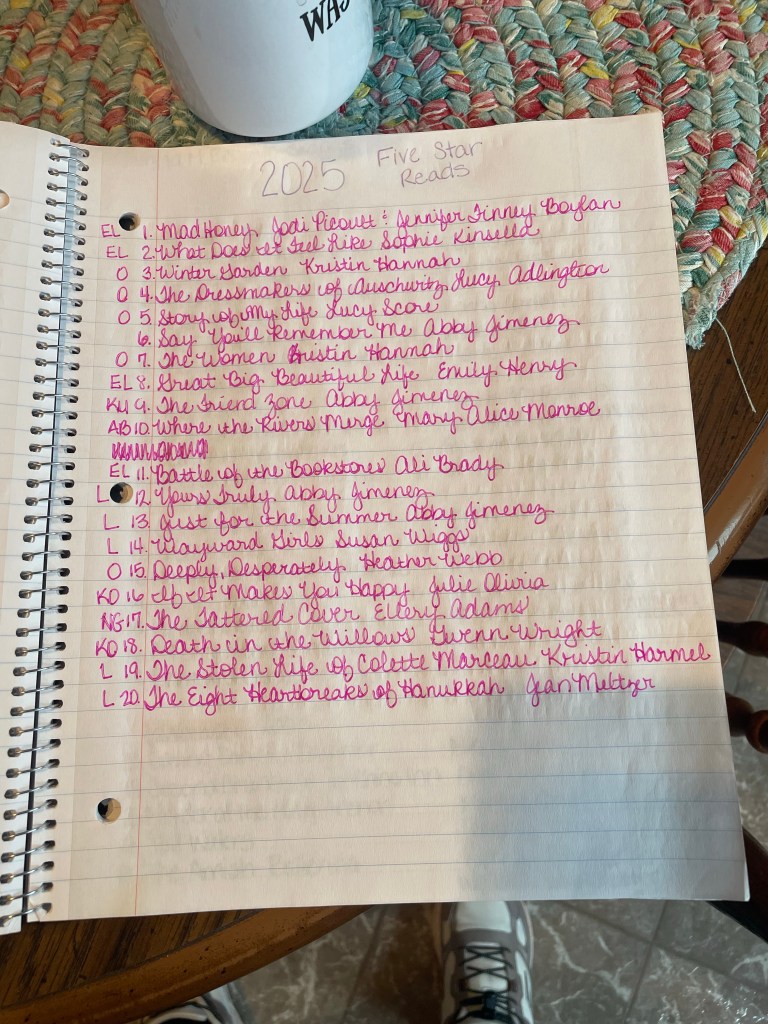 WAS
2025 Five Star Reads
EL 1. Mad Honey Jodi Picoult & Jennifer Finney Boylan
EL 2. What Does It Feel Like Sophie Kinsella
O 3. Winter Garden Kristin Hannah
O 4. The Dressmakers of Auschwitz Lucy Adlington
O 5. Story of My Life Lucy Score
6. Say You'll Remember Me Abby Jimenez
O 7. The Women Kristin Hannah
EL 8. Great Big Beautiful Life Emily Henry
KU 9. The Friend Zone Abby Jimenez
AB 10. Where the Rivers Merge Mary Alice Monroe
EL 11. Battle of the Bookstores Ali Brady
L 12. Yours Truly Abby Jimenez
L 13. Just for the Summer Abby Jimenez
L 14. Wayward Girls Susan Wiggs
O 15. Deeply, Desperately Heather Webb
KO 16. If It Makes You Happy Julie Olivia
NG 17. The Tattered Cover Ellery Adams
KO 18. Death in the Willows Gwenn Wright
L 19. The Stolen Life of Colette Marceau Kristin Harmel
L 20. The Eight Heartbreaks of Hanukkah Jean Meltzer